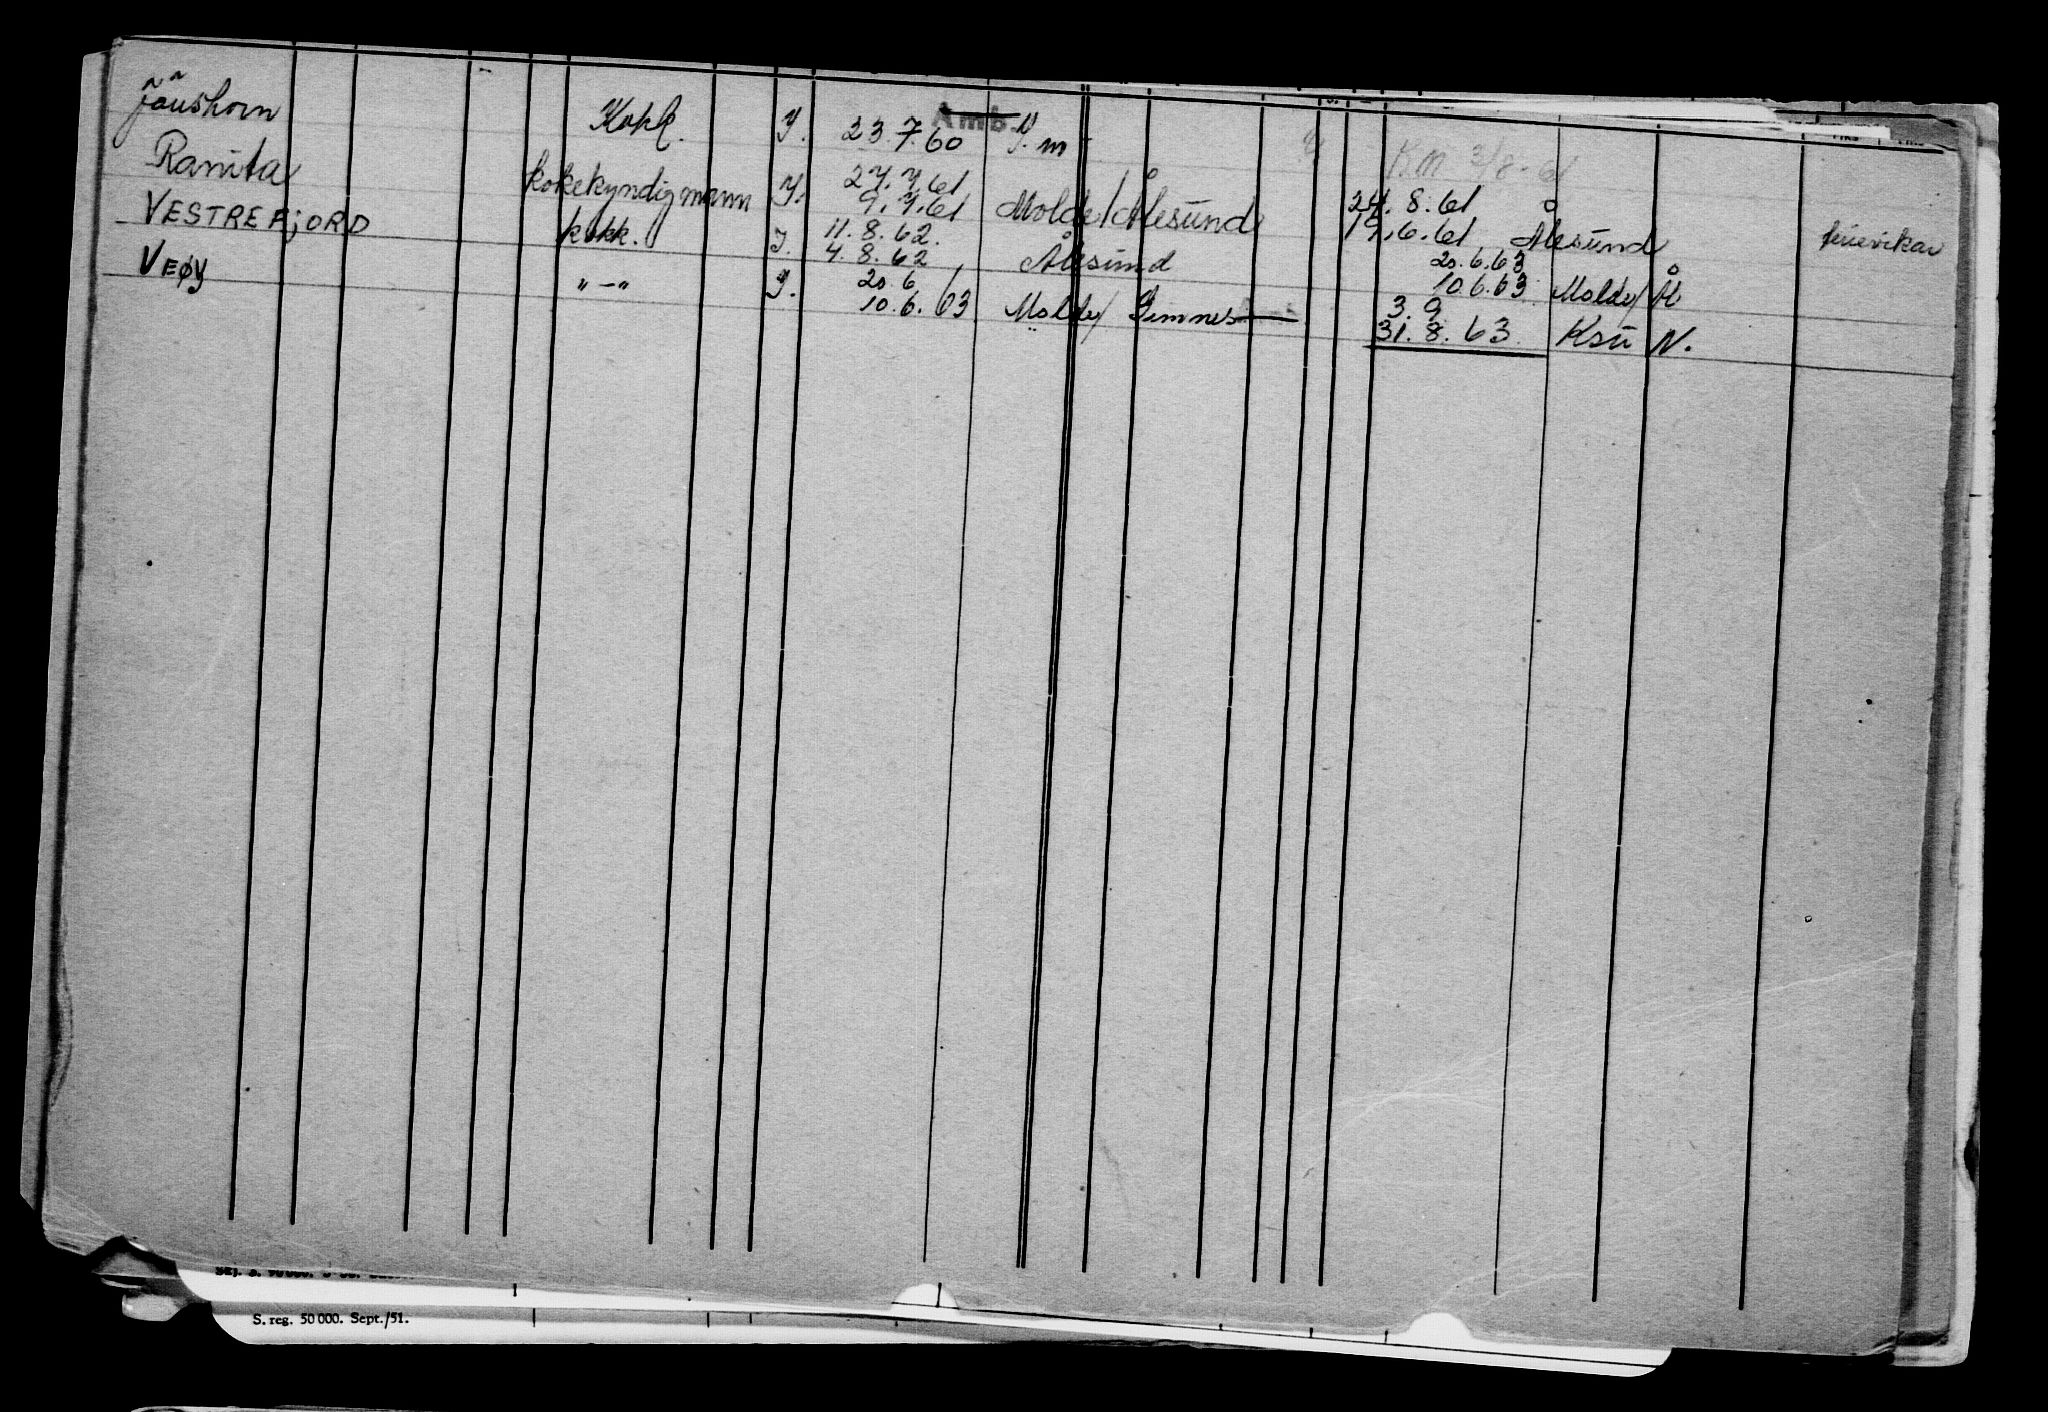 Jaushorn Kokk. Y. 23.7.60 Amb. P.m
KM 3/8-61
Ranita kokekyndig mann Y. 27.7.61 9.7.61 Molde/Ålesund 24.8.61 19.6.61 Ålesund
VESTREFJORD kokk. Y. 11.8.62. 4.8.62 Ålesund 20.6.63 10.6.63 Molde/Å
VEØY "-" Y. 20.6 10.6.63 Molde/Gimnes 3.9 31.8.63 Ksu N.
S. reg. 50 000. Sept./51.